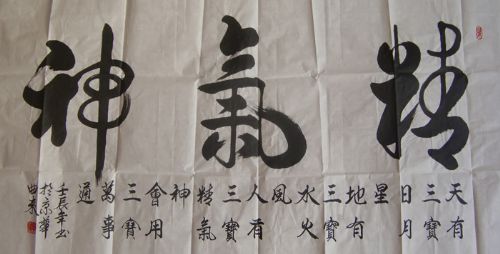 精氣神
天有
三寶
日月
星
地有
三寶
水火
風
人有
三寶
精氣
神
會用
三寶
萬事
通
壬辰年书
於京華